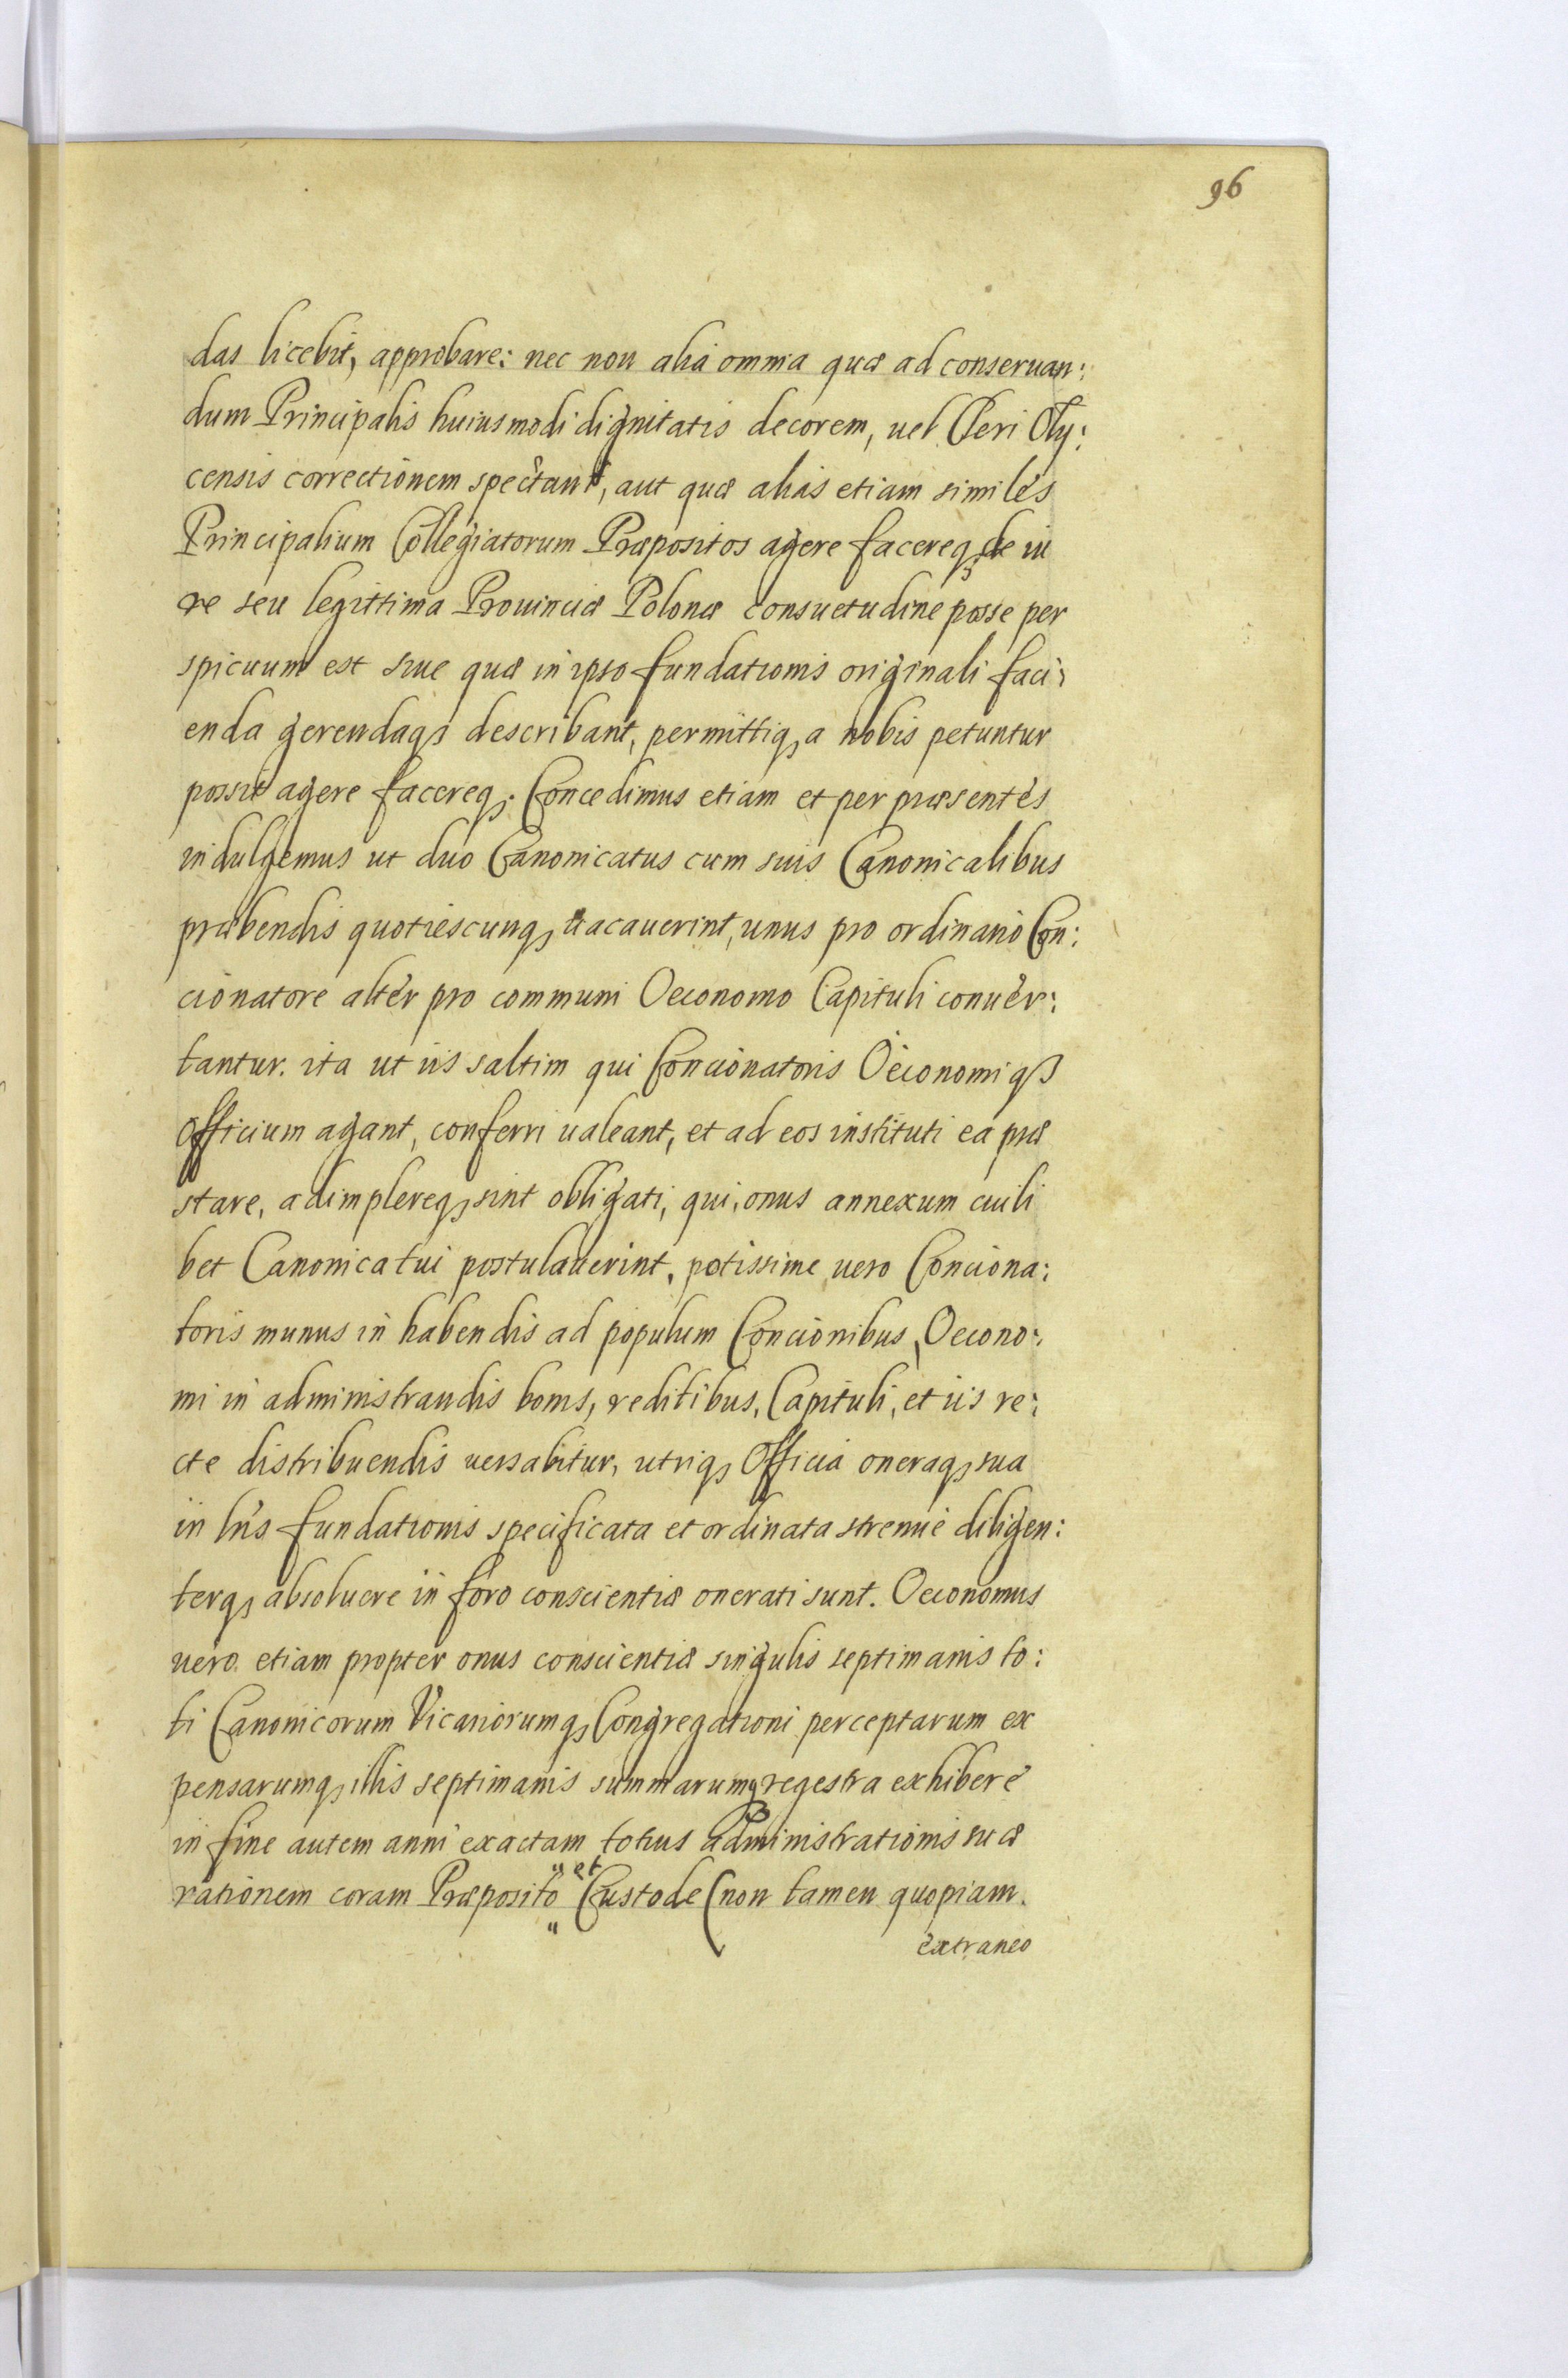 96
das licebit, approbare: nec non alia omnia quæ ad conseruan:
dum Principalis huiusmodi dignitatis decorem, uel Cleri Oly:
censis correctionem spectant, aut quæ alias etiam similes
Principalium Collegiatorum Præpositos agere facereq, de iu
re seu legittima Prouinciæ Polonæ consuetudine posse per
spicuum est siue quæ in ipso fundationis originali faci:
enda gerendaq, describant, permittiq, a nobis petuntur
possit agere facereq. Concedimus etiam et per præsentes
indulgemus ut duo Canonicatus cum suis Canonicalibus
præbendis quotiescunq, uacauerint, unus pro ordinario Con:
cionatore alter pro communi Oeconomo Capituli conuer:
tantur. ita ut iis saltim qui Concionatoris Oeconomiq,
officium agant, conferri ualeant, et ad eos instituti ea præ
stare, adimplereq, sint obligati, qui, onus annexum cuili
bet Canonicatui postulauerint, potissime uero Conciona:
toris munus in habendis ad populum Concionibus, Oecono:
mi in administrandis bonis, reditibus, Capituli, et iis re:
cte distribuendis uersabitur, utriq, Officia oneraq, sua
in lris fundationis specificata et ordinata strenue diligen:
terq, absoluere in foro conscientiæ onerati sunt. Oeconomus
uero etiam propter onus conscientiæ singulis septimanis to:
ti Canonicorum Vicariorumq, Congregationi perceptarum ex
pensarumq, illis septimanis summarumq, regestra exhibere
in fine autem anni exactam totius administrationis suæ
rationem coram Præposito et Custode (non tamen quopiam.
extraneo